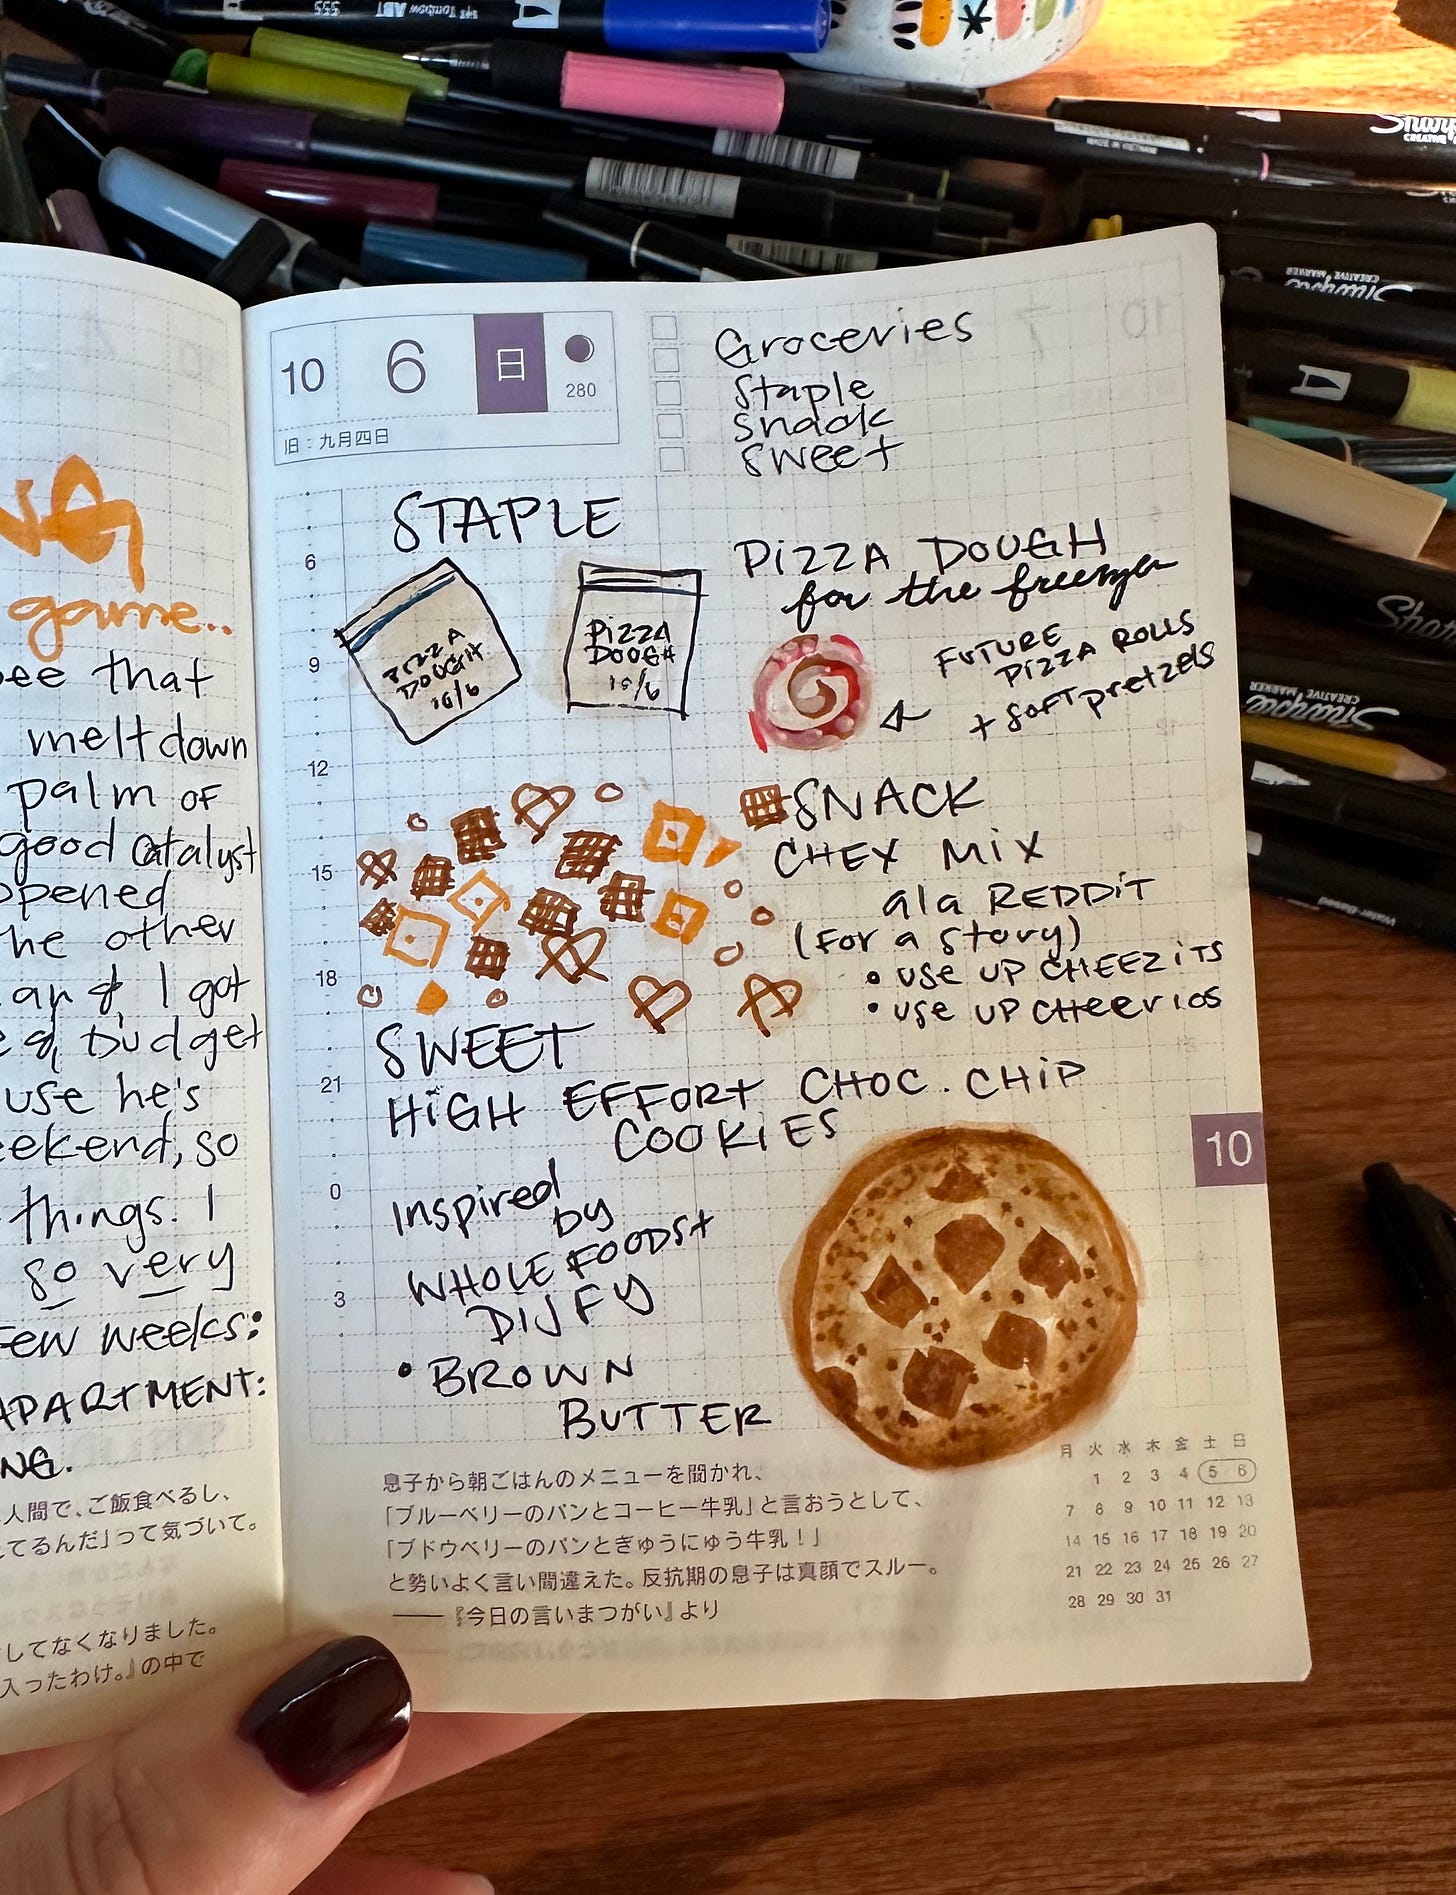 TOMBOW ABT
555
MADE IN VIETNAM
Sharpie
CREATIVE MARKER
Sharpie
CREATIVE MARKER
Sharpie
Sharpie
CREATIVE MARKER
Water-Based
game..
that
meltdown
palm OF
good catalyst
opened
the other
and, I got
budget
he's
weekend, so
things. I
so very
few weeks:
APARTMENT:
人間で、ご飯食べるし、
てるんだ」って気づいて。
してなくなりました。
入ったわけ。』の中で
10 6 日
280
旧：九月四日
Groceries
Staple
Snack
Sweet
STAPLE
PIZZA DOUGH
for the freezer
PIZZA
DOUGH
10/6
PIZZA
DOUGH
10/6
FUTURE
PIZZA ROLLS
+ SOFT pretzels
SNACK
CHEX MIX
ala REDDIT
(For a story)
• USE UP CHEEZITS
• USE UP CHEERIOS
SWEET
HIGH EFFORT CHOC. CHIP
COOKIES
Inspired
by
WHOLE FOODS +
DIJFY
• BROWN
BUTTER
6
9
12
15
18
21
0
3
10
息子から朝ごはんのメニューを聞かれ、
「ブルーベリーのパンとコーヒー牛乳」と言おうとして、
「ブドウベリーのパンとぎゅうにゅう牛乳！」
と勢いよく言い間違えた。反抗期の息子は真顔でスルー。
——『今日の言いまつがい』より
月 火 水 木 金 土 日
1 2 3 4 5 6
7 8 9 10 11 12 13
14 15 16 17 18 19 20
21 22 23 24 25 26 27
28 29 30 31